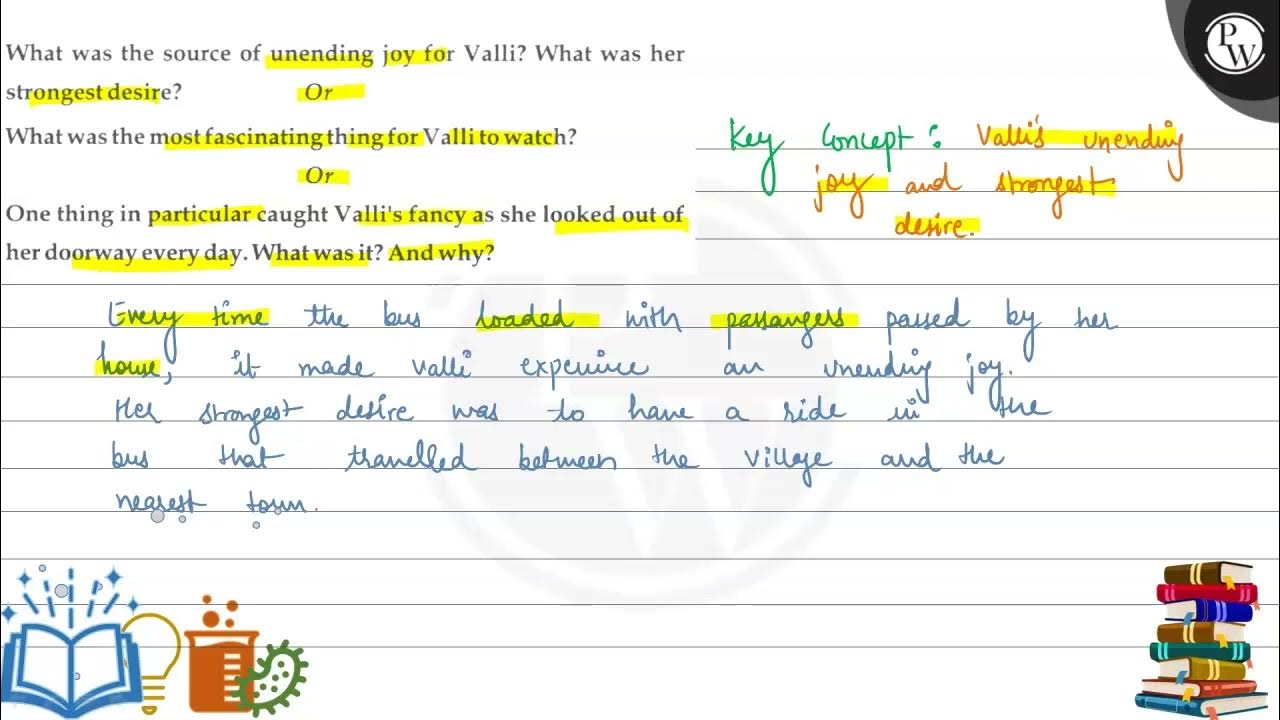 What was the source of unending joy for Valli? What was her
strongest desire?
Or
What was the most fascinating thing for Valli to watch?
Or
One thing in particular caught Valli's fancy as she looked out of
her doorway every day. What was it? And why?
PW
Key Concept: Valli's unending
joy and strongest
desire.
Every time the bus loaded with passangers passed by her
house, it made valli expenice an unending joy.
Her strongest desire was to have a ride in the
bus that travelled between the village and the
nearest town.